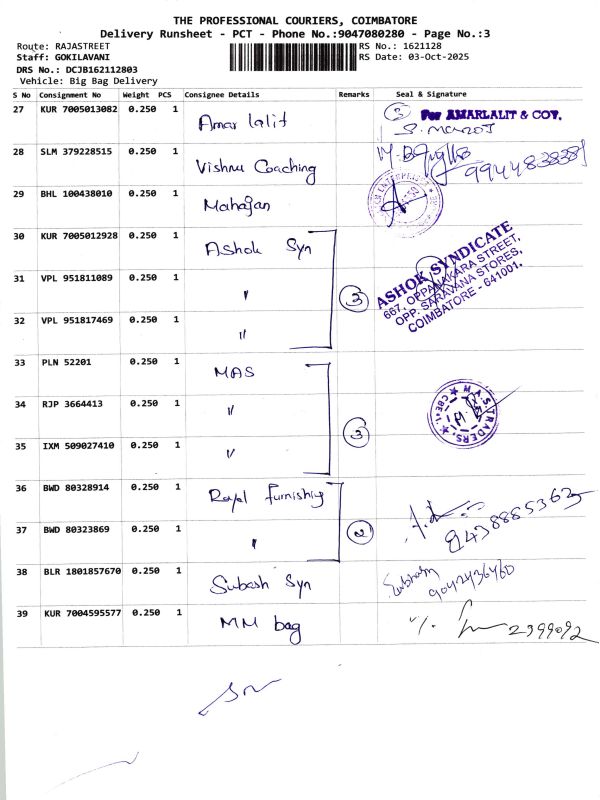 THE PROFESSIONAL COURIERS, COIMBATORE
Delivery Runsheet - PCT - Phone No.:9047080280 - Page No.:3
Route: RAJASTREET RS No.: 1621128
Staff: GOKILAVANI RS Date: 03-Oct-2025
DRS No.: DCJB162112803
Vehicle: Big Bag Delivery
S No Consignment No Weight PCS Consignee Details Remarks Seal & Signature
27 KUR 7005013082 0.250 1 Amar lalit 3 For AMARLALIT & COY.
S. MANOJ
28 SLM 379228515 0.250 1 Vishnu Coaching
29 BHL 100438010 0.250 1 Mahajan
30 KUR 7005012928 0.250 1 Ashok Syn
31 VPL 951811089 0.250 1 〃 3 ASHOK SYNDICATE
667, OPPANAKARA STREET,
OPP. SARAVANA STORES,
COIMBATORE - 641001.
32 VPL 951817469 0.250 1 〃
33 PLN 52201 0.250 1 MAS
34 RJP 3664413 0.250 1 〃 3 M.A.S TRADERS. CBE-1.
35 IXM 509027410 0.250 1 〃
36 BWD 80328914 0.250 1 Royal furnishing
37 BWD 80323869 0.250 1 〃 2 9438885363
38 BLR 1801857670 0.250 1 Subash Syn Subham
9042436460
39 KUR 7004595577 0.250 1 MM bag 2399092